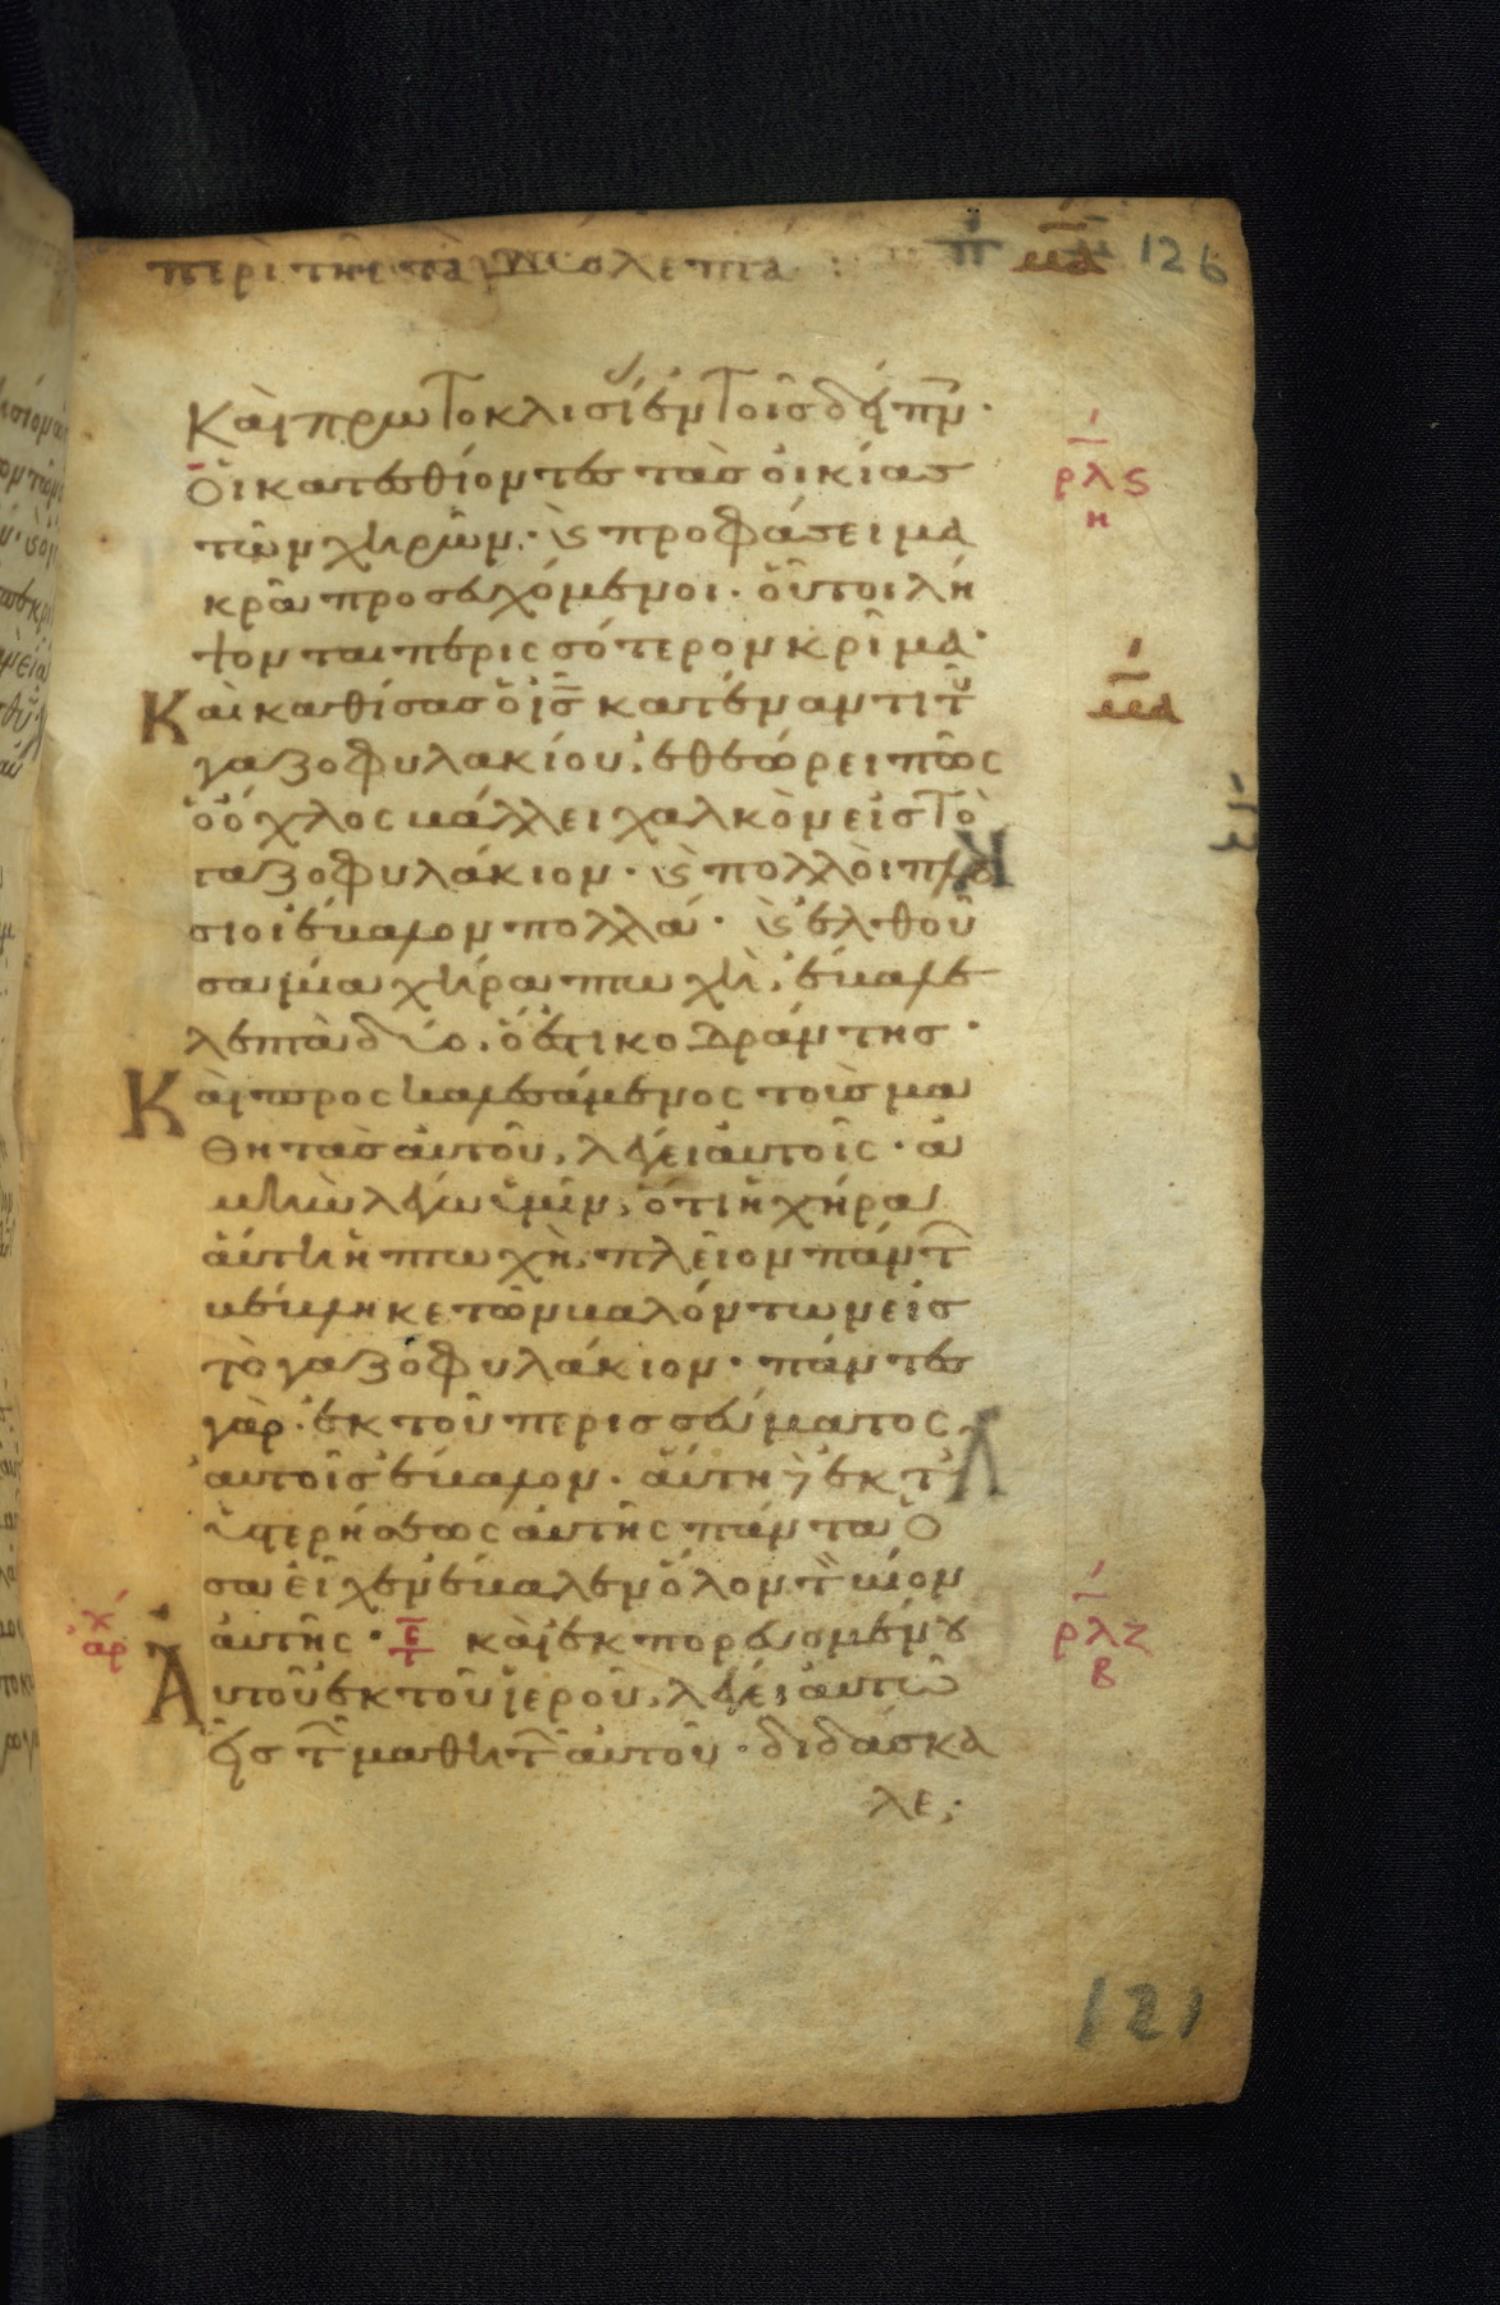 περὶ τῆς τὰ δύο λεπτά : μα 126
Καὶ πρωτοκλισί ἐν τοῖς δείπν·
ρλς
η
Οἱ κατεσθίοντες τὰς οἰκίας
τῶν χηρῶν· ϗ προφάσει μα
κρὰ προσευχόμενοι· οὗτοι λή
ψονται περισσότερον κρῖμα·
μα
Καὶ καθίσας ὁ ις κατέναντι τοῦ
γαζοφυλακίου, ἐθεώρει πῶς
ὁ ὄχλος βάλλει χαλκὸν εἰς τὸ
γαζοφυλάκιον· ϗ πολλοὶ πλού
σιοι ἔβαλλον πολλά· ϗ ἐλθοῦ
σα μία χήρα πτωχή, ἔβαλε
λεπτὰ δύο, ὅ ἐστι κοδράντης·
Καὶ προσκαλεσάμενος τοὺς μα
θητὰς αὐτοῦ, λέγει αὐτοῖς· ἀ
μὴν λέγω ὑμῖν, ὅτι ἡ χήρα
αὕτη ἡ πτωχὴ, πλεῖον πάντ
βέβληκε τῶν βαλόντων εἰς
τὸ γαζοφυλάκιον· πάντες
γὰρ ἐκ τοῦ περισσεύματος
αὐτοῖς ἔβαλον· αὕτη δὲ ἐκ τ
ὑστερήσεως αὐτῆς πάντα ὅ
σα εἶχεν ἔβαλεν ὅλον τὸν βίον
αὐτῆς· καὶ ἐκπορευομένου
ρλζ
β
αρχ
Αὐτοῦ ἐκ τοῦ ἱεροῦ, λέγει αὐτῶ
εἷς τ μαθητ αὐτοῦ· διδάσκα
λε,
121